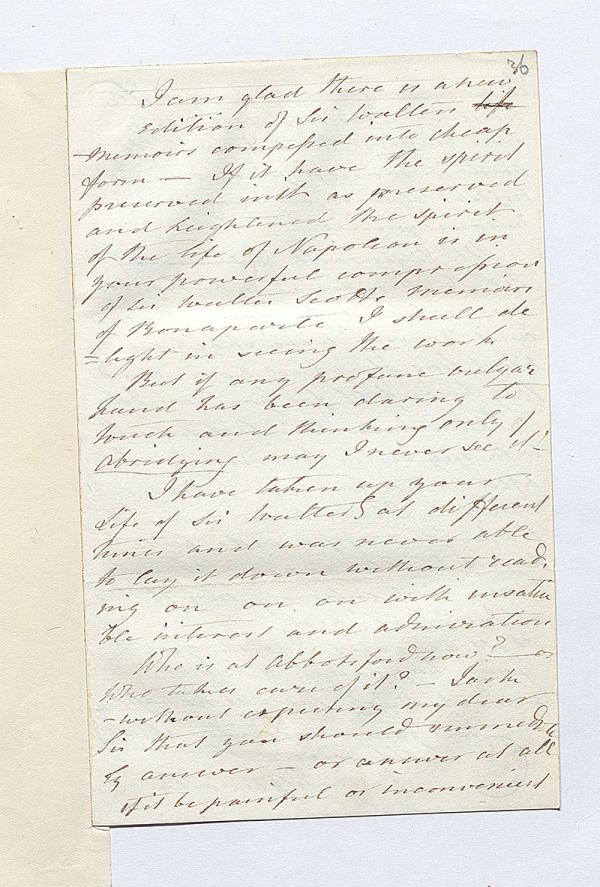 36
I am glad there is a new
edition of Sir Walters life
-memoirs compressed into cheap
form — If it have the spirit
preserved in it as preserved
and heightened the spirit
of the life of Napoleon is in
your powerful compression
of Sir Walter Scotts memoirs
of Bonaparte I shall de
=light in seeing the work
But if any profane vulgar
hand has been daring to
touch and thinking only of
abridging may I never see it!
I have taken up your
Life of Sir Walter S at different
times and was never able
to lay it down without read,
ing on on on with insatia
ble interest and admiration
Who is at Abbotsford now? — or
who takes care of it? — I ask
-without expecting my dear
Sir that you should immediate
ly answer — or answer at all
if it be painful or inconvenient